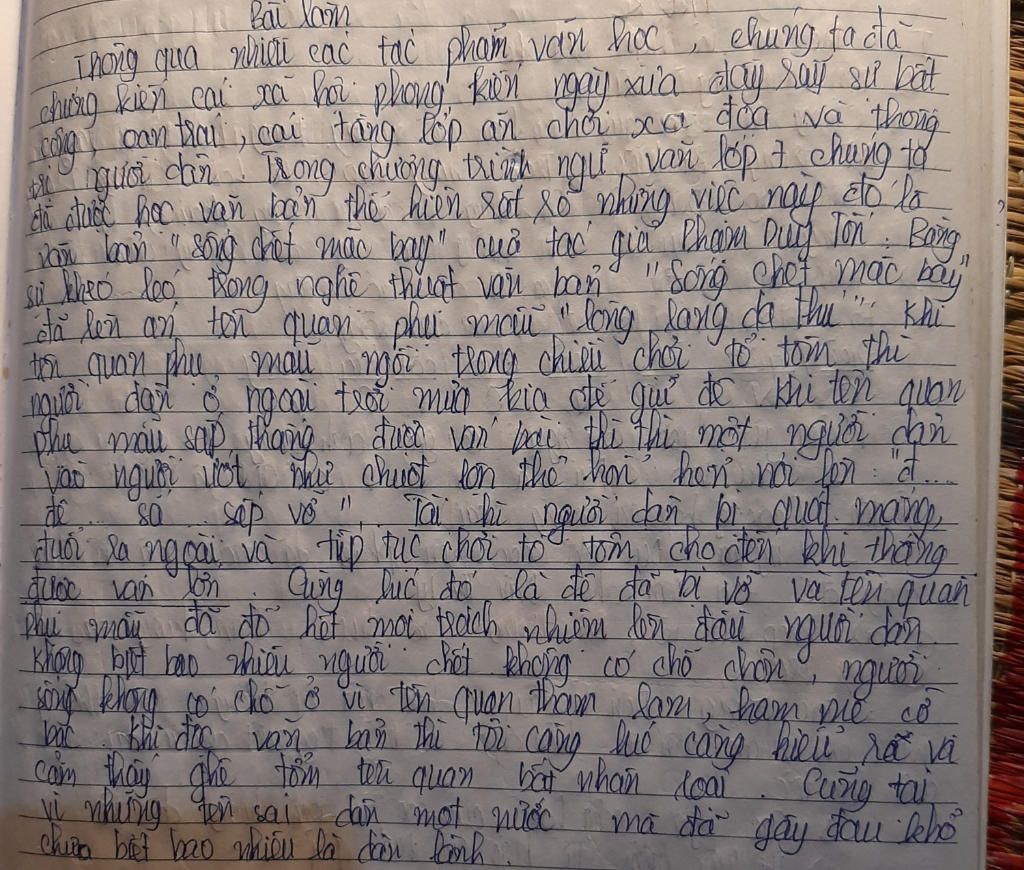 Bài làm
Thông qua nhiều các tác phẩm văn học, chúng ta đã
chứng kiến cái xã hội phong kiến ngày xưa đầy rẫy sự bất
công, oan trái, cái tầng lớp ăn chơi xa đọa và thống
trị người dân. Trong chương trình ngữ văn lớp 7 chúng ta
đã được học văn bản thể hiện rất rõ những việc này đó là
văn bản "sống chết mặc bay" của tác giả Phạm Duy Tốn. Bằng
sự khéo léo trong nghệ thuật văn bản "Sống chết mặc bay"
đã lên án tên quan phụ mẫu "lòng lang dạ thú". Khi
tên quan phụ mẫu ngồi trong chiếu chơi tổ tôm thì
người dân ở ngoài trời mưa kia để giữ đê khi tên quan
phụ mẫu sắp thắng được ván bài thì thì một người dân
vào người ướt như chuột lên thở hổn hển nói lên: "đ....
đê .. sắ .. sắp vỡ", Tái hì người dân bị quát mắng,
đuổi ra ngoài và tiếp tục chơi tổ tôm cho đến khi thắng
được ván lớn. Cũng lúc đó là đê đã bị vỡ và tên quan
phụ mẫu đã đổ hết mọi trách nhiệm lên đầu người dân
không biết bao nhiêu người chết không có chỗ chôn, người
sống không có chỗ ở vì tên quan tham lam, ham mê cờ
bạc. Khi đọc văn bản thì tôi càng lúc càng hiểu rõ và
cảm thấy ghê tởm tên quan bất nhân loại. Cũng tại
vì những tên sai dân một nước mà đã gây đau khổ
chưa biết bao nhiêu là dân lành.